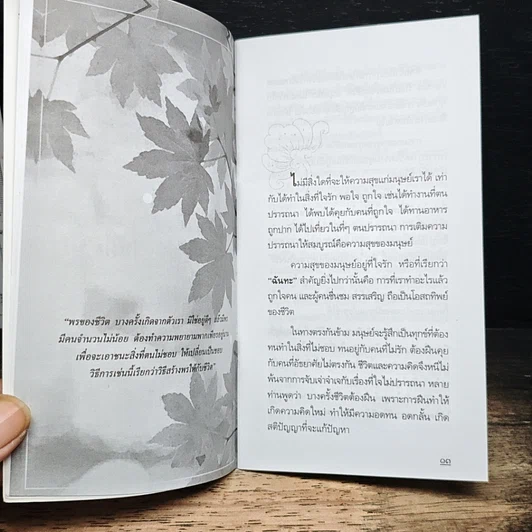 "พรของชีวิต บางครั้งเกิดจากตัวเรา มิใช่อยู่ดีๆ
มีคนจำนวนไม่น้อย ต้องทำความพยายามพากเพียร
เพื่อจะเอาชนะสิ่งที่ตนไม่ชอบ ให้เปลี่ยนเป็นชอบ
วิธีการเช่นนี้เรียกว่าวิธีสร้างพรให้กับชีวิต"
ไม่มีสิ่งใดที่จะให้ความสุขแก่มนุษย์เราได้ เท่า
กับได้ทำในสิ่งที่ใจรัก พอใจ ถูกใจ เช่นได้ทำงานที่ตน
ปรารถนา ได้พบได้คุยกับคนที่ถูกใจ ได้ทานอาหาร
ถูกปาก ได้ไปเที่ยวในที่ๆ ตนปรารถนา การเติมความ
ปรารถนาให้สมบูรณ์คือความสุขของมนุษย์
ความสุขของมนุษย์อยู่ที่ใจรัก หรือที่เรียกว่า
"ฉันทะ" สำคัญยิ่งไปกว่านั้นคือ การที่เราทำอะไรแล้ว
ถูกใจคน และผู้คนชื่นชม สรรเสริญ ถือเป็นโอสถทิพย์
ของชีวิต
ในทางตรงกันข้าม มนุษย์จะรู้สึกเป็นทุกข์ที่ต้อง
ทนทำในสิ่งที่ไม่ชอบ ทนอยู่กับคนที่ไม่รัก ต้องฝืนคุย
กับคนที่อัธยาศัยไม่ตรงกัน ชีวิตและความคิดจึงหนีไม่
พ้นจากการจับเจ่าจำเจกับเรื่องที่ใจไม่ปรารถนา หลาย
ท่านพูดว่า บางครั้งชีวิตต้องฝืน เพราะการฝืนทำให้
เกิดความคิดใหม่ ทำให้มีความอดทน อดกลั้น เกิด
สติปัญญาที่จะแก้ปัญหา
๑๓